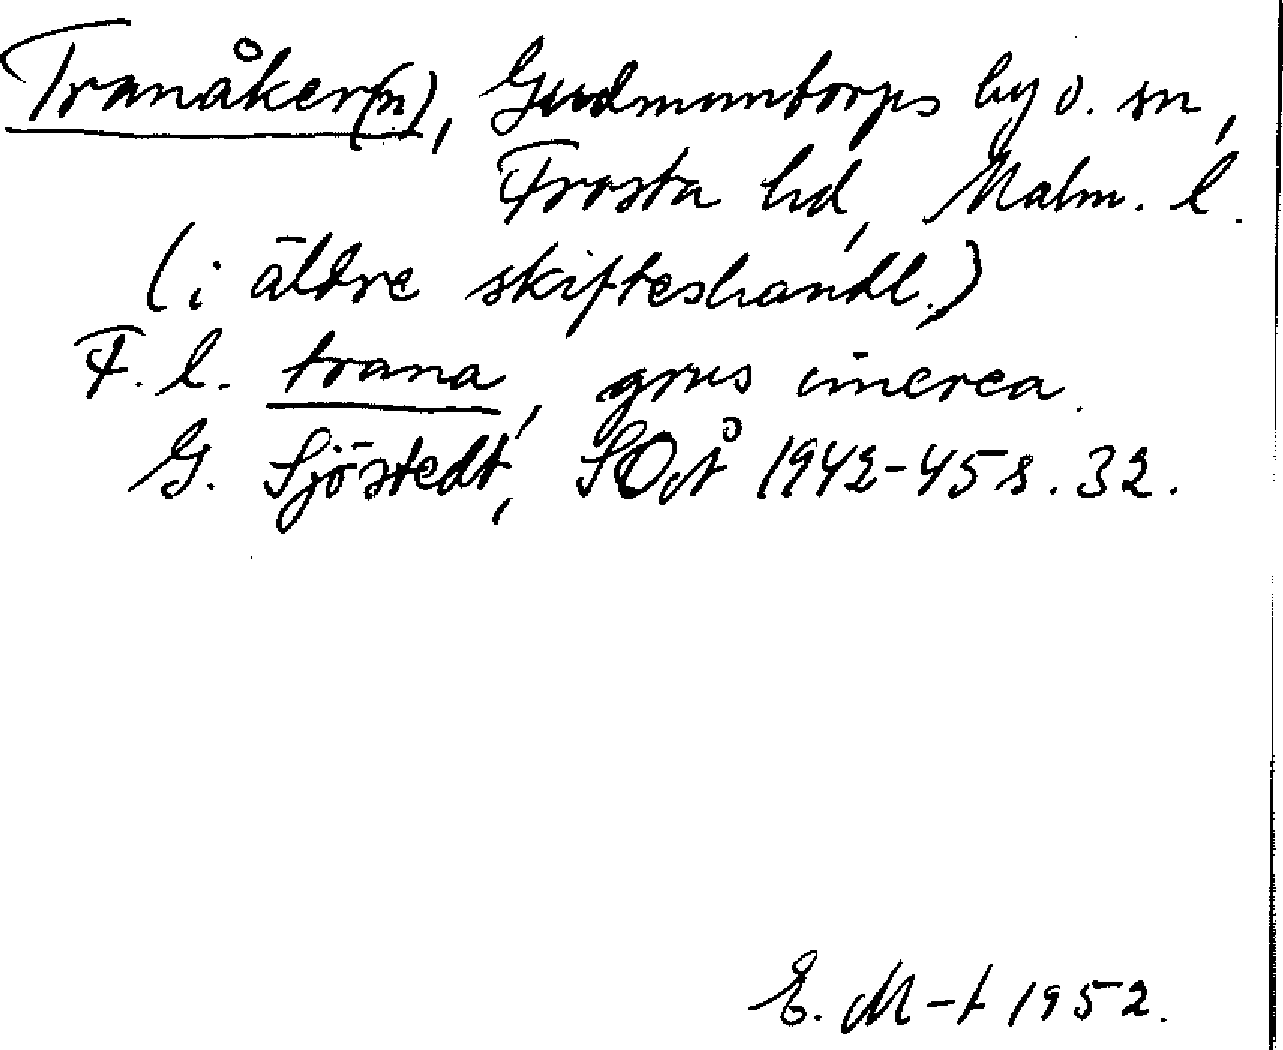 Tranåker(n), Gudmuntorps by o. sn,
Frosta hd, Malm. l.
(i äldre skifteshandl.)
F. l. trana, grus cinerea.
G. Sjöstedt, SOÅ 1942-45 s. 32.
E. M-t 1952.